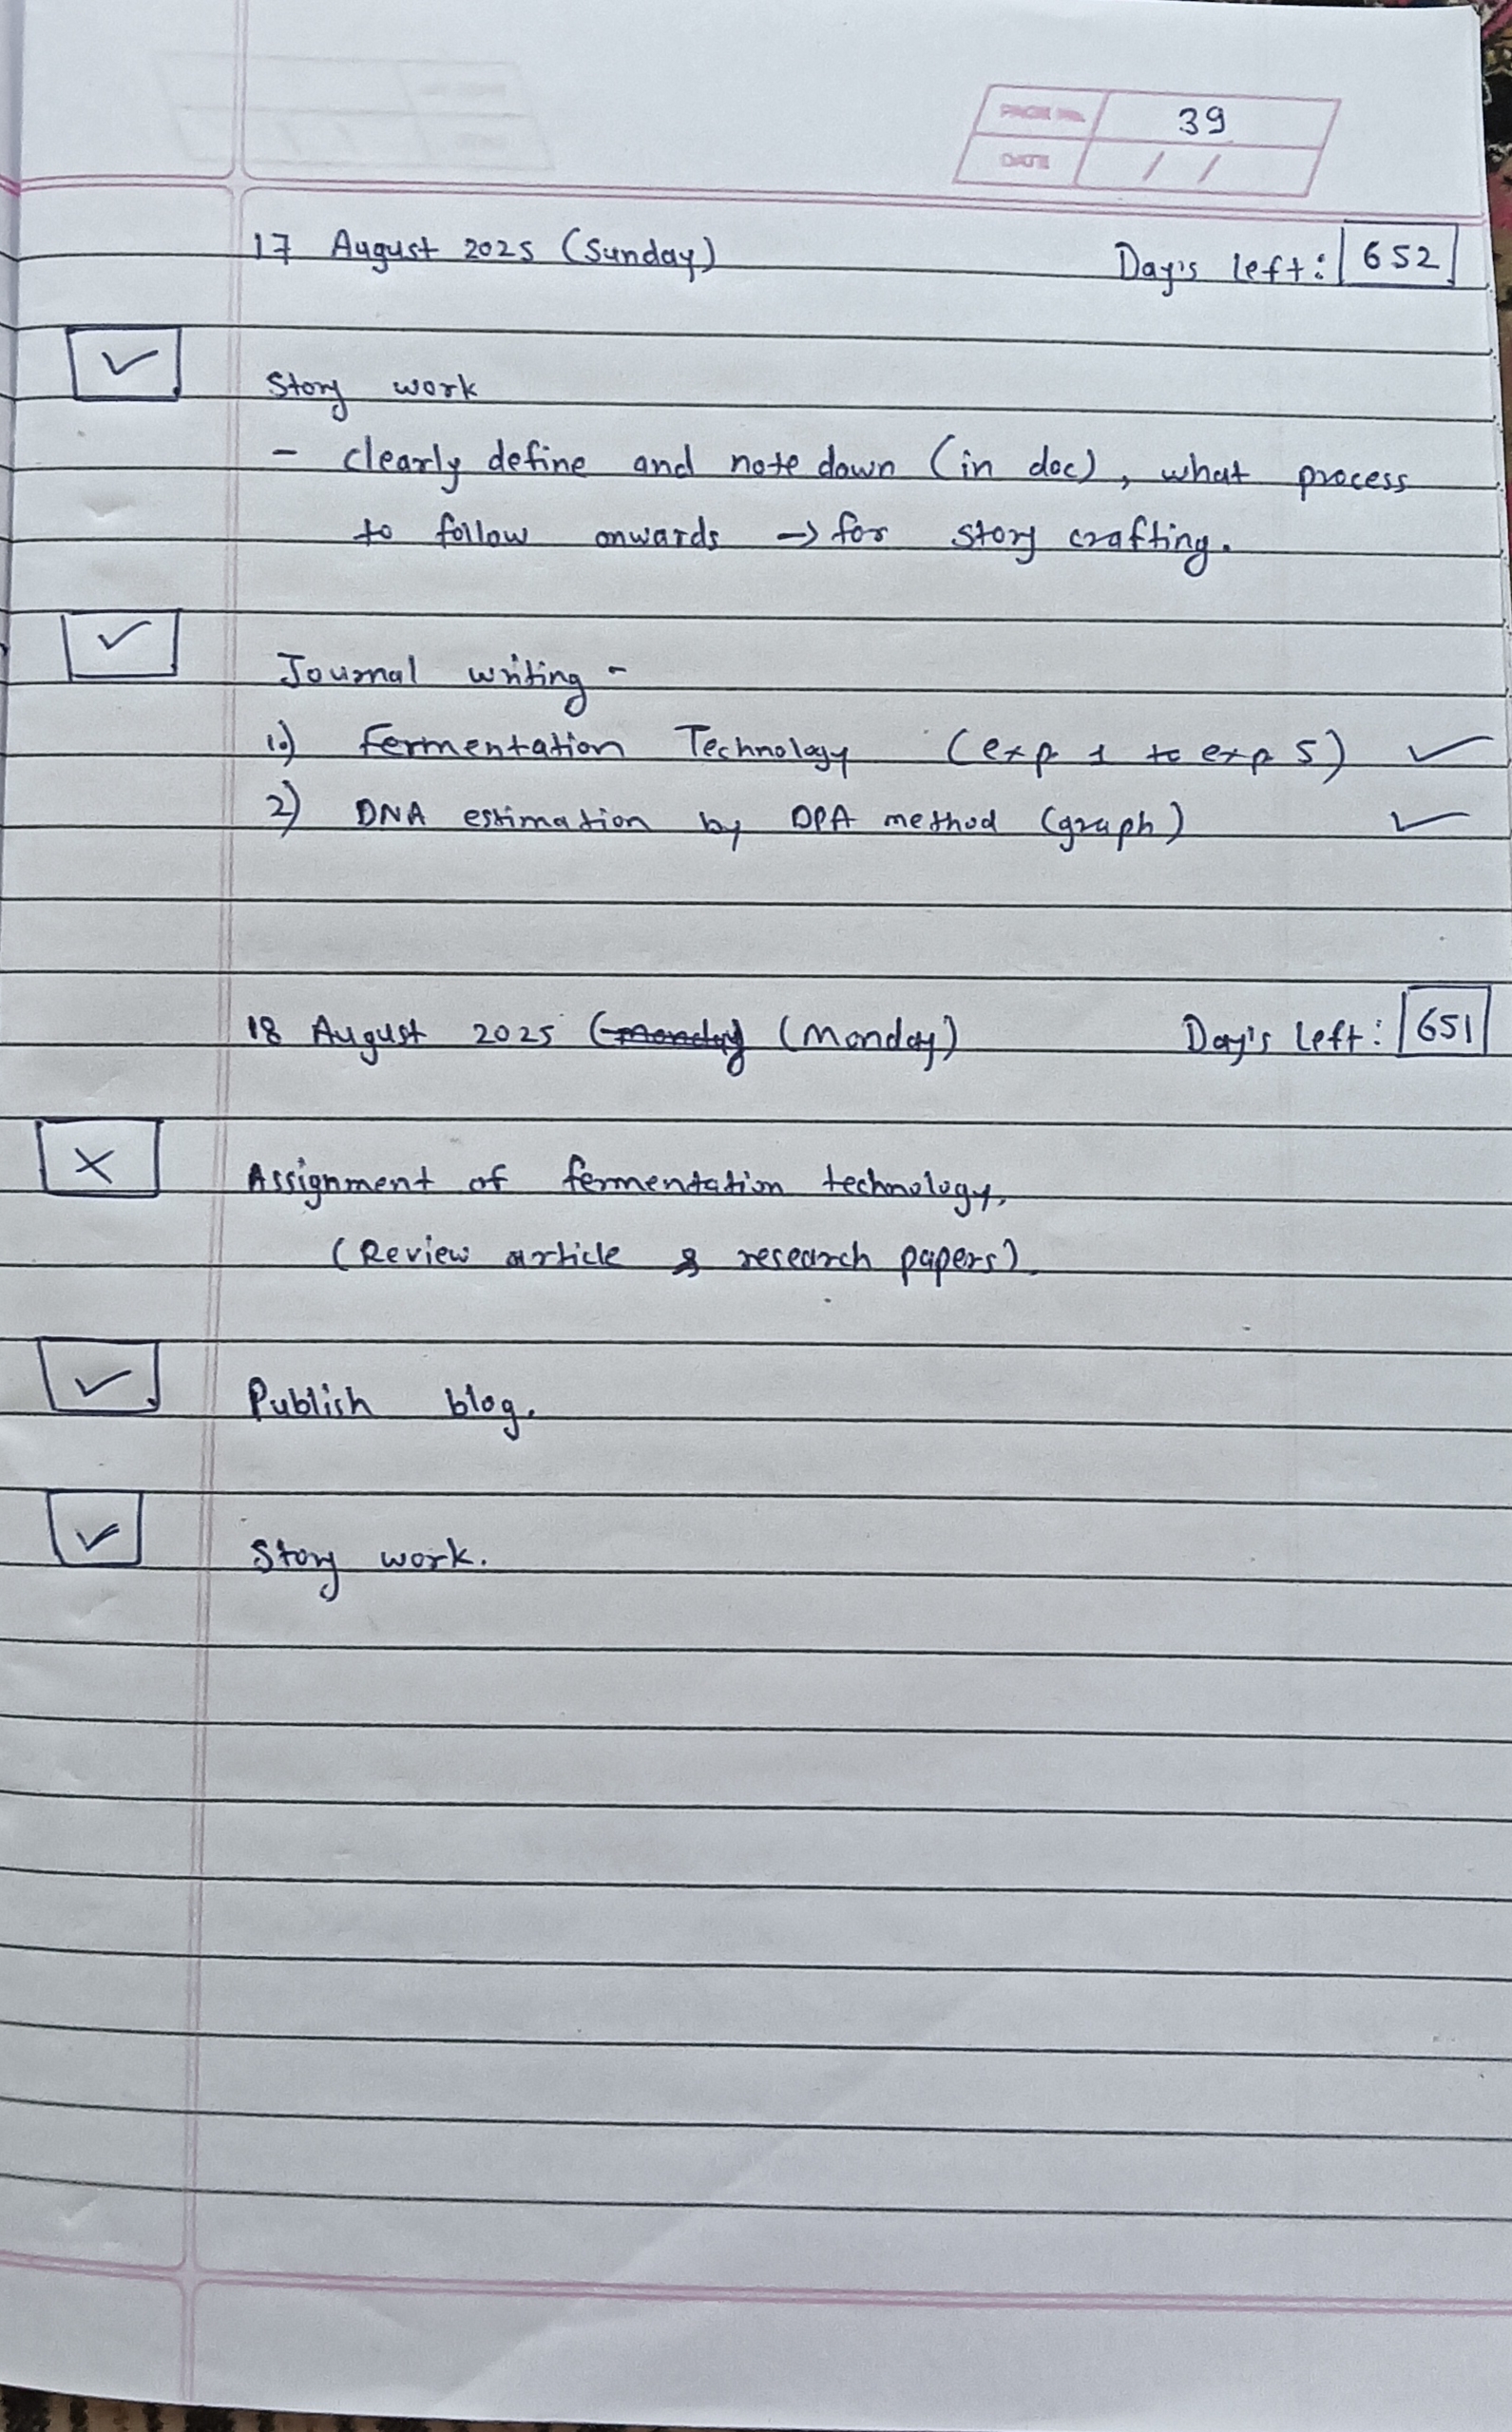 PAGE No. 39
DATE / /
17 August 2025 (Sunday) Day's left: 652
✓ Story work
- clearly define and note down (in doc), what process
to follow onwards → for story crafting.
✓ Journal writing -
1.) Fermentation Technology (exp 1 to exp 5) ✓
2) DNA estimation by DPA method (graph) ✓
18 August 2025 (monday (Monday) Day's left: 651
X Assignment of fermentation technology.
(Review article & research papers).
✓ Publish blog.
✓ Story work.